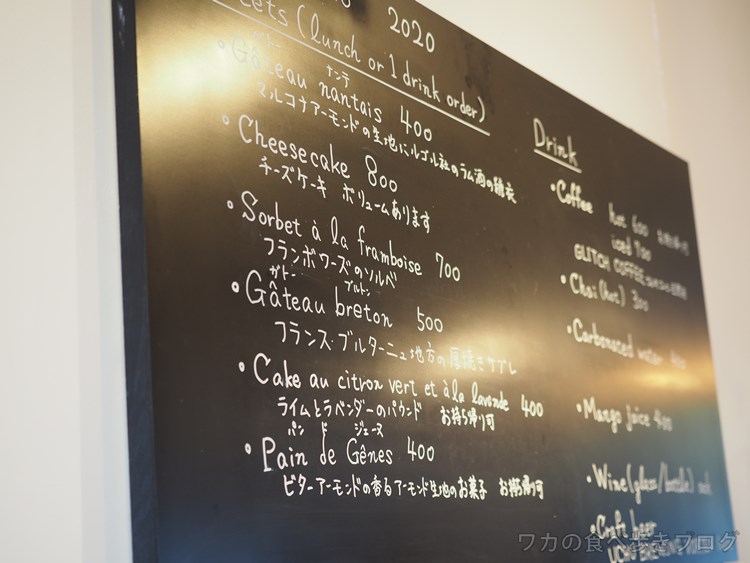 2020
(lunch or 1 drink order)
ガトー ナンテ
・Gâteau nantais 400
マルコナアーモンドの生地にルゴル社のラム酒の糖衣
・Cheesecake 800
チーズケーキ ボリュームあります
・Sorbet à la framboise 700
フランボワーズのソルベ
ガトー ブルトン
・Gâteau breton 500
フランス・ブルターニュ地方の厚焼きサブレ
・Cake au citron vert et à la lavande 400
ライムとラベンダーのパウンド お持ち帰り可
パン ド ジェーヌ
・Pain de Gênes 400
ビターアーモンドの香るアーモンド生地のお菓子 お持ち帰り可
Drink
・Coffee hot 600
iced 700
GLITCH COFFEE
・Chai(hot) 300
・Carbonated water
・Mango juice 400
・Wine(glass/bottle)
・Craft beer
ワカの食べ歩きブログ